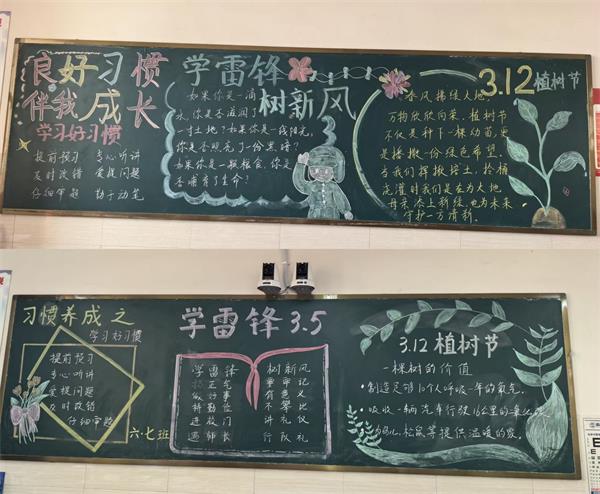 良好习惯
伴我成长
学习好习惯
提前预习 专心听讲
及时改错 爱提问题
仔细审题 勤于动笔
学雷锋
树新风
如果你是一滴
水,你是否滋润了
一寸土地?如果你是一线阳光,
你是否照亮了一份黑暗?
如果你是一颗粮食,你是
否哺育了生命?
3.12植树节
春风拂绿大地,
万物欣欣向荣。植树节
不仅是种下一棵幼苗,更
是播撒一份绿色希望。
当我们挥锹培土、拎桶
浇灌时我们是在为大地
母亲添上新绿,也为未来
守护一方清新。
习惯养成之
学习好习惯
提前预习
专心听讲
爱提问题
及时改错
仔细审题
六·七班
学雷锋3.5
学雷锋 树新风
做好事
遇师长 行队礼
3.12植树节
一棵树的价值
·制造足够10个人呼吸一年的氧气。
·吸收一辆汽车行驶
松鼠等提供温暖的家。